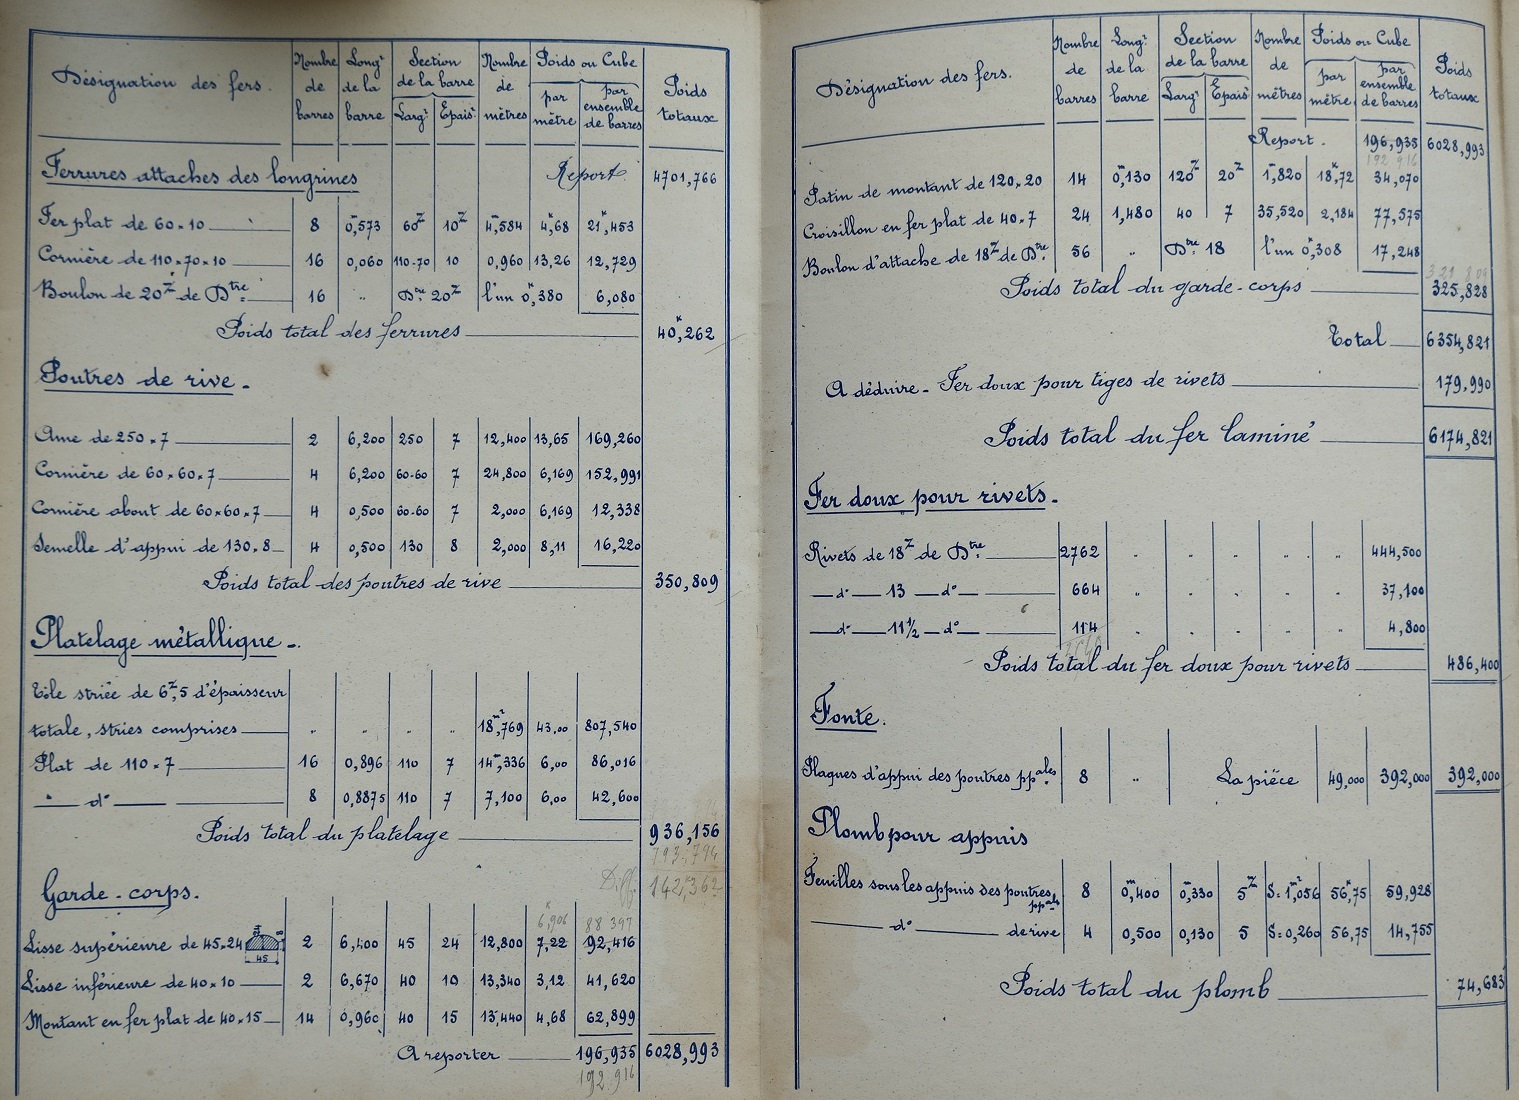 Désignation des fers. Nombre de barres Longr de la barre Section de la barre Largr Epaisr Nombre de mètres Poids ou Cube par mètre par ensemble de barres Poids totaux
Ferrures attaches des longrines Report. 4701,766
Fer plat de 60×10 8 0m,573 60z 10z 4m,584 4k,68 21k,453
Cornière de 110×70×10 16 0,060 110-70 10 0,960 13,26 12,729
Boulon de 20z de Dtre 16 " Dtre 20z l'un 0k,380 6,080
Poids total des ferrures 40k,262
Poutres de rive.
Ame de 250×7 2 6,200 250 7 12,400 13,65 169,260
Cornière de 60×60×7 4 6,200 60-60 7 24,800 6,169 152,991
Cornière about de 60×60×7 4 0,500 60-60 7 2,000 6,169 12,338
Semelle d'appui de 130×8 4 0,500 130 8 2,000 8,11 16,220
Poids total des poutres de rive 350,809
Platelage métallique.
Tôle striée de 6z,5 d'épaisseur
totale, stries comprises " " " " 18m²,769 43,00 807,540
Plat de 110×7 16 0,896 110 7 14m,336 6,00 86,016
" do 8 0,8875 110 7 7,100 6,00 42,600
Poids total du platelage 936,156
793,794
Diff. 142,362
Garde-corps.
6k,906 88 397
Lisse supérieure de 45×24 45 2 6,400 45 24 12,800 7,22 92,416
Lisse inférieure de 40×10 2 6,670 40 10 13,340 3,12 41,620
Montant en fer plat de 40×15 14 0,960 40 15 13,440 4,68 62,899
A reporter 196,935 6028,993
192.916
Désignation des fers. Nombre de barres Longr de la barre Section de la barre Largr Epaisr Nombre de mètres Poids ou Cube par mètre par ensemble de barres Poids totaux
Report. 196,935 6028,993
192 916
Patin de montant de 120×20 14 0m,130 120z 20z 1m,820 18k,72 34,070
Croisillon en fer plat de 40×7 24 1,480 40 7 35,520 2,184 77,575
Boulon d'attache de 18z de Dtre 56 " Dtre 18 l'un 0k,308 17,248
321 809
Poids total du garde-corps 325,828
Total 6354,821
A déduire - Fer doux pour tiges de rivets 179,990
Poids total du fer laminé 6174,821
Fer doux pour rivets.
Rivets de 18z de Dtre 2762 " " " " " 444,500
do 13 do 664 " " " " " 37,100
do 11½ do 114 " " " " " 4,800
Poids total du fer doux pour rivets 486,400
Fonte.
Plaques d'appui des poutres ppales 8 " La pièce 49,000 392,000 392,000
Plomb pour appuis
Feuilles sous les appuis des poutres ppales 8 0m,400 0m,330 5z S=1m²,056 56k,75 59,928
do de rive 4 0,500 0,130 5 S=0,260 56,75 14,755
Poids total du plomb 74,683